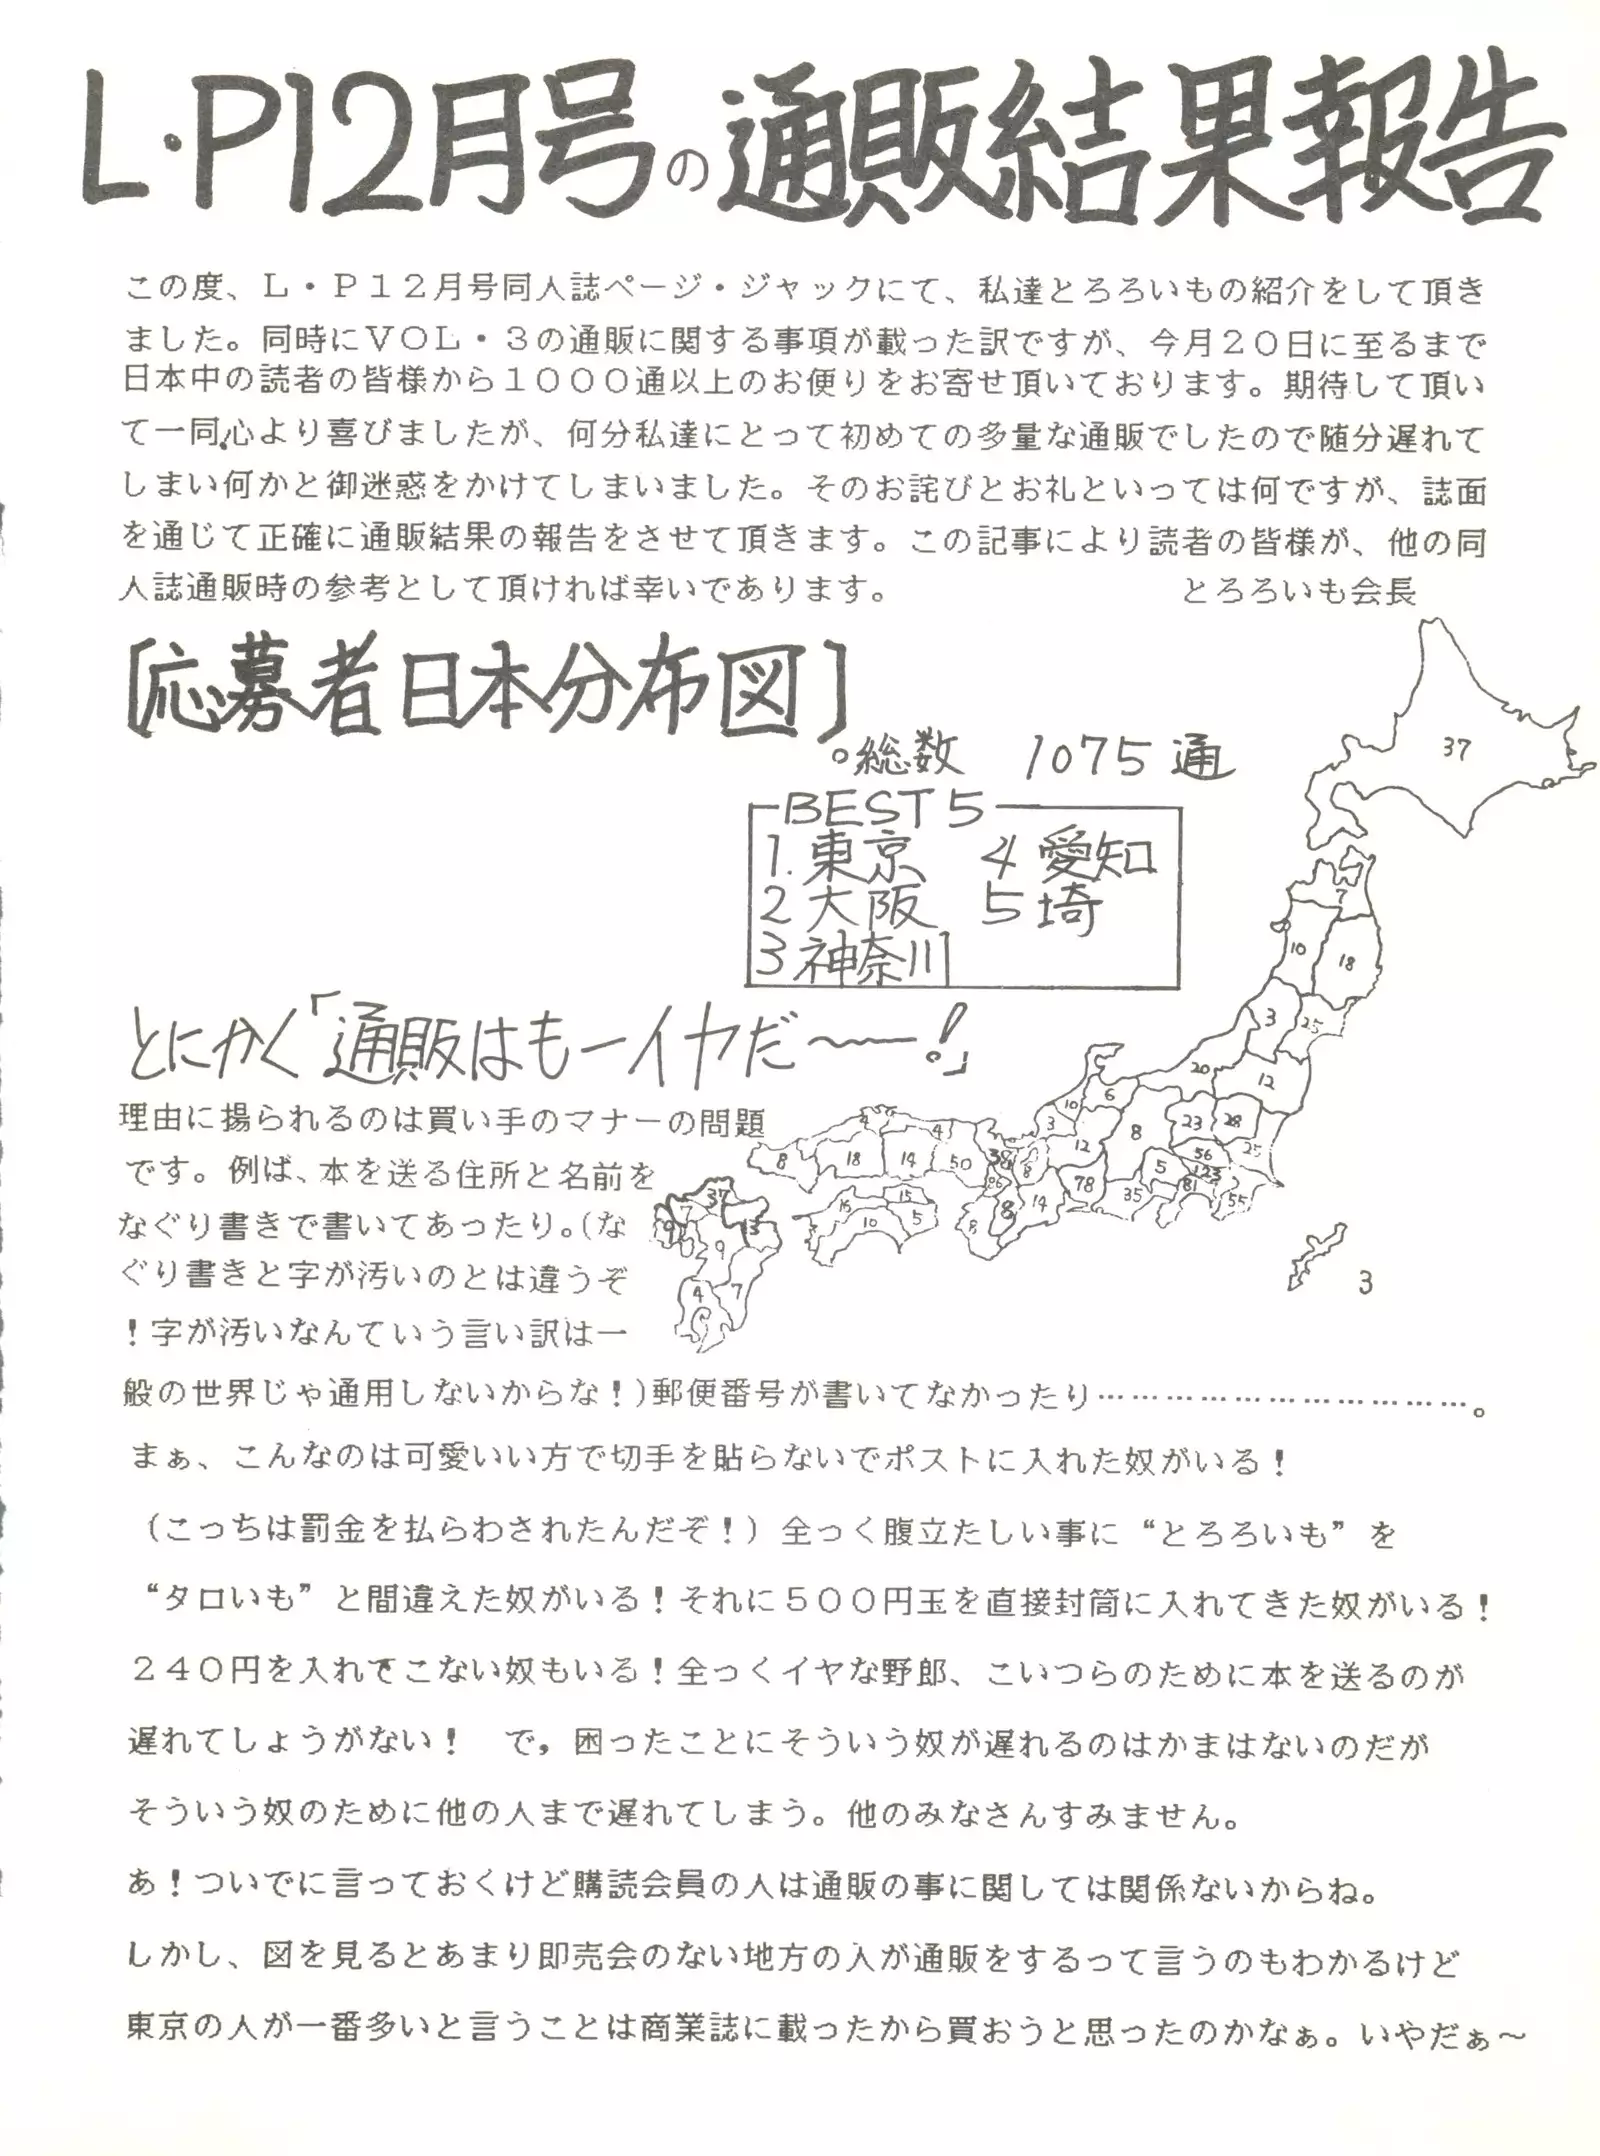 L・P12月号の通販結果報告
この度、Ｌ・Ｐ１２月号同人誌ページ・ジャックにて、私達とろろいもの紹介をして頂き
ました。同時にＶＯＬ・３の通販に関する事項が載った訳ですが、今月２０日に至るまで
日本中の読者の皆様から１０００通以上のお便りをお寄せ頂いております。期待して頂い
て一同心より喜びましたが、何分私達にとって初めての多量な通販でしたので随分遅れて
しまい何かと御迷惑をかけてしまいました。そのお詫びとお礼といっては何ですが、誌面
を通じて正確に通販結果の報告をさせて頂きます。この記事により読者の皆様が、他の同
人誌通販時の参考として頂ければ幸いであります。　とろろいも会長
[応募者日本分布図]
。総数　1075通
BEST5
1.東京　4愛知
2大阪　5埼
3神奈川
37
7
10 18
3 25
20 12
10 6 23 28
3 12 8 25
56
4 4
8 18 14 50 38 8 5 123
86 78 35 81 55
37 15 14
7 16 10 5 8 8
9 13
9
4 7
3
とにかく「通販はもーイヤだ〜ー！」
理由に揚られるのは買い手のマナーの問題
です。例ば、本を送る住所と名前を
なぐり書きで書いてあったり。（な
ぐり書きと字が汚いのとは違うぞ
！字が汚いなんていう言い訳は一
般の世界じゃ通用しないからな！）郵便番号が書いてなかったり………………………………。
まぁ、こんなのは可愛いい方で切手を貼らないでポストに入れた奴がいる！
（こっちは罰金を払らわされたんだぞ！）全っく腹立たしい事に“とろろいも”を
“タロいも”と間違えた奴がいる！それに５００円玉を直接封筒に入れてきた奴がいる！
２４０円を入れてこない奴もいる！全っくイヤな野郎、こいつらのために本を送るのが
遅れてしょうがない！　で，困ったことにそういう奴が遅れるのはかまはないのだが
そういう奴のために他の人まで遅れてしまう。他のみなさんすみません。
あ！ついでに言っておくけど購読会員の人は通販の事に関しては関係ないからね。
しかし、図を見るとあまり即売会のない地方の人が通販をするって言うのもわかるけど
東京の人が一番多いと言うことは商業誌に載ったから買おうと思ったのかなぁ。いやだぁ〜